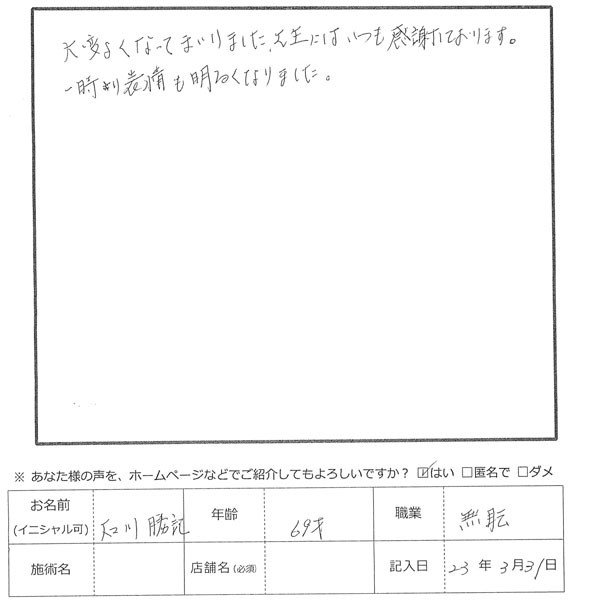 大変よくなってまいりました。先生にはいつも感謝しております。
一時より表情も明るくなりました。
※ あなた様の声を、ホームページなどでご紹介してもよろしいですか？ ☑はい □匿名で □ダメ
お名前 (イニシャル可) 石川 勝記 年齢 69才 職業 無職
施術名 店舗名 (必須) 記入日 23 年 3月31日